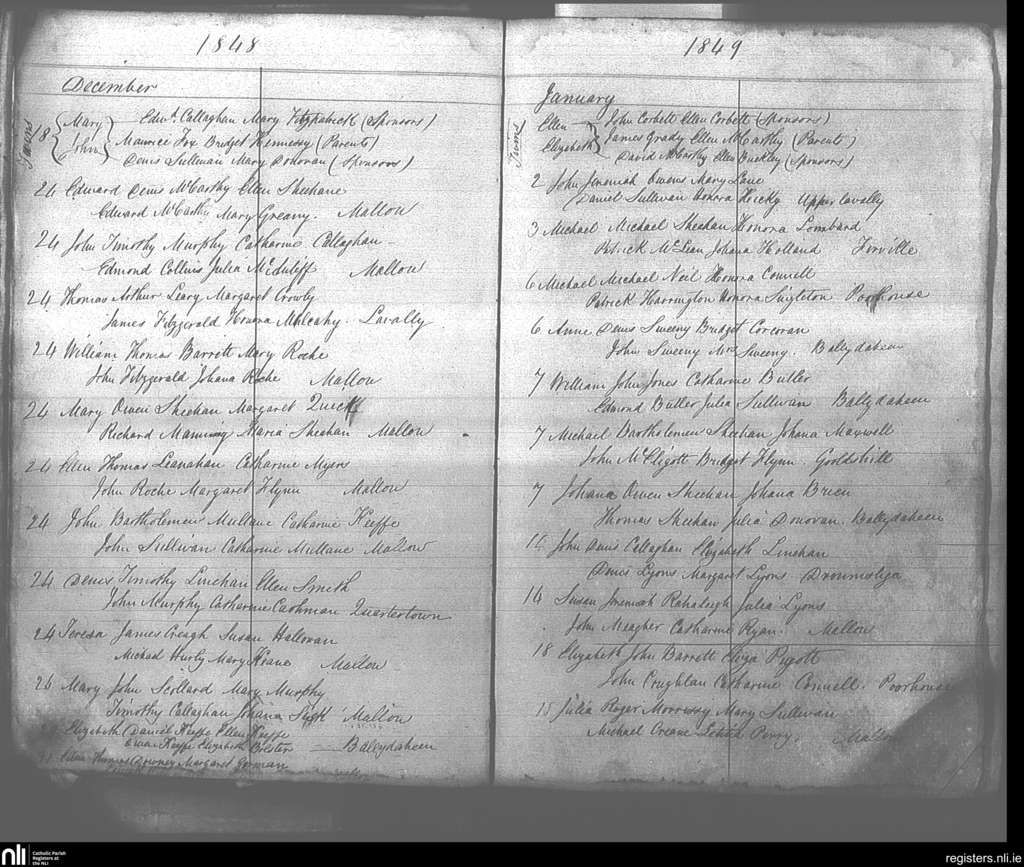 1848
December
Twins 18 Mary John Edwd. Callaghan Mary Fitzpatrick (Sponsors)
Maurice Fox Bridget Hennessy (Parents)
Denis Sullivan Mary Donovan (Sponsors)
24 Edward Denis McCarthy Ellen Sheehane
Edward McCarthy Mary Greany. Mallow
24 John Timothy Murphy Catharine Callaghan
Edmond Collins Julia McAuliff Mallow
24 Thomas Arthur Leary Margaret Crowly
James Fitzgerald Honora Mulcahy. Lavally
24 William Thomas Barrett Mary Roche
John Fitzgerald Johana Roche Mallow
24 Mary Owen Sheehan Margaret Quirk
Richard Manning Maria Sheehan Mallow
24 Ellen Thomas Leanahan Catharine Myers
John Roche Margaret Flynn Mallow
24 John Bartholemew Mullane Catharine Keeffe
John Sullivan Catharine Mullane Mallow
24 Denis Timothy Linehan Ellen Smith
John Murphy Catharine Cashman Quartertown
24 Teresa James Creagh Susan Halloran
Michael Hurly Mary Keane Mallow
26 Mary John Scollard Mary Murphy
Timothy Callaghan Johana Mallow
Elizabeth Daniel Keeffe Ellen Keeffe
Owen Keeffe Elizabeth Ballydaheen
Ellen Thomas Downey Margaret Gorman
1849
January
Twins Ellen Elizabeth John Corbett Ellen Corbett (Sponsors)
James Grady Ellen McCarthy (Parents)
David McCarthy Ellen Buckley (Sponsors)
2 John Jeremiah Owens Mary Lane
Daniel Sullivan Honora Hicky Upper Lavally
3 Michael Michael Sheehan Honora Lombard
Patrick McLean Johana Holland Firville
6 Michael Michael Neil Honora Connell
Patrick Harrington Honora Singleton Poorhouse
6 Anne Denis Sweeny Bridget Corcoran
John Sweeny Mrs Sweeny. Ballydaheen
7 William John Jones Catharine Butler
Edmond Butler Julia Sullivan Ballydaheen
7 Michael Bartholemew Sheehan Johana Maxwell
John McEligott Bridget Flynn. Gooldshill
7 Johana Owen Sheehan Johana Brien
Thomas Sheehan Julia Donovan. Ballydaheen
John Denis Callaghan Elizabeth Linehan
Denis Lyons Margaret Lyons
14 Susan Jeremiah Julia Lyons
John Meagher Catharine Ryan. Mallow
18 Elizabeth John Barrett Eliza Pigott
John Coughlan Catharine Connell. Poorhouse
Julia Roger Morrissy Mary Sullivan
Michael Creane Perry. Mallow
nli
Catholic Parish
Registers at
the NLI
registers.nli.ie